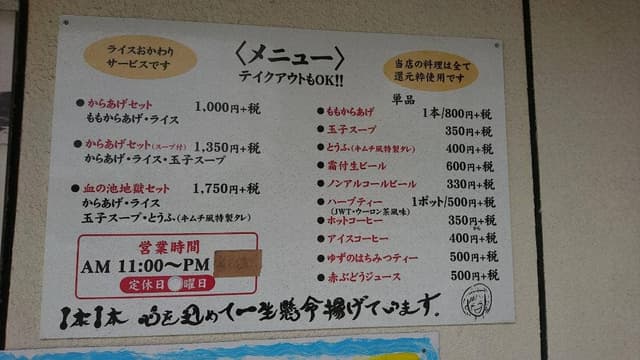 ライスおかわり
サービスです
〈メニュー〉
テイクアウトもOK!!
当店の料理は全て
還元粋使用です
● からあげセット 1,000円+税
ももからあげ・ライス
● からあげセット(スープ付) 1,350円+税
からあげ・ライス・玉子スープ
● 血の池地獄セット 1,750円+税
からあげ・ライス
玉子スープ・とうふ(キムチ風特製タレ)
営業時間
AM 11:00〜PM
定休日 曜日
単品
● ももからあげ 1本/800円+税
● 玉子スープ 350円+税
● とうふ(キムチ風特製タレ) 400円+税
● 霜付生ビール 600円+税
● ノンアルコールビール 330円+税
● ハーブティー 1ポット/500円+税
(JWT・ウーロン茶風味)
● ホットコーヒー 350円+税
から
● アイスコーヒー 400円+税
● ゆずのはちみつティー 500円+税
● 赤ぶどうジュース 500円+税
1本1本 心を込めて一生懸命揚げています.